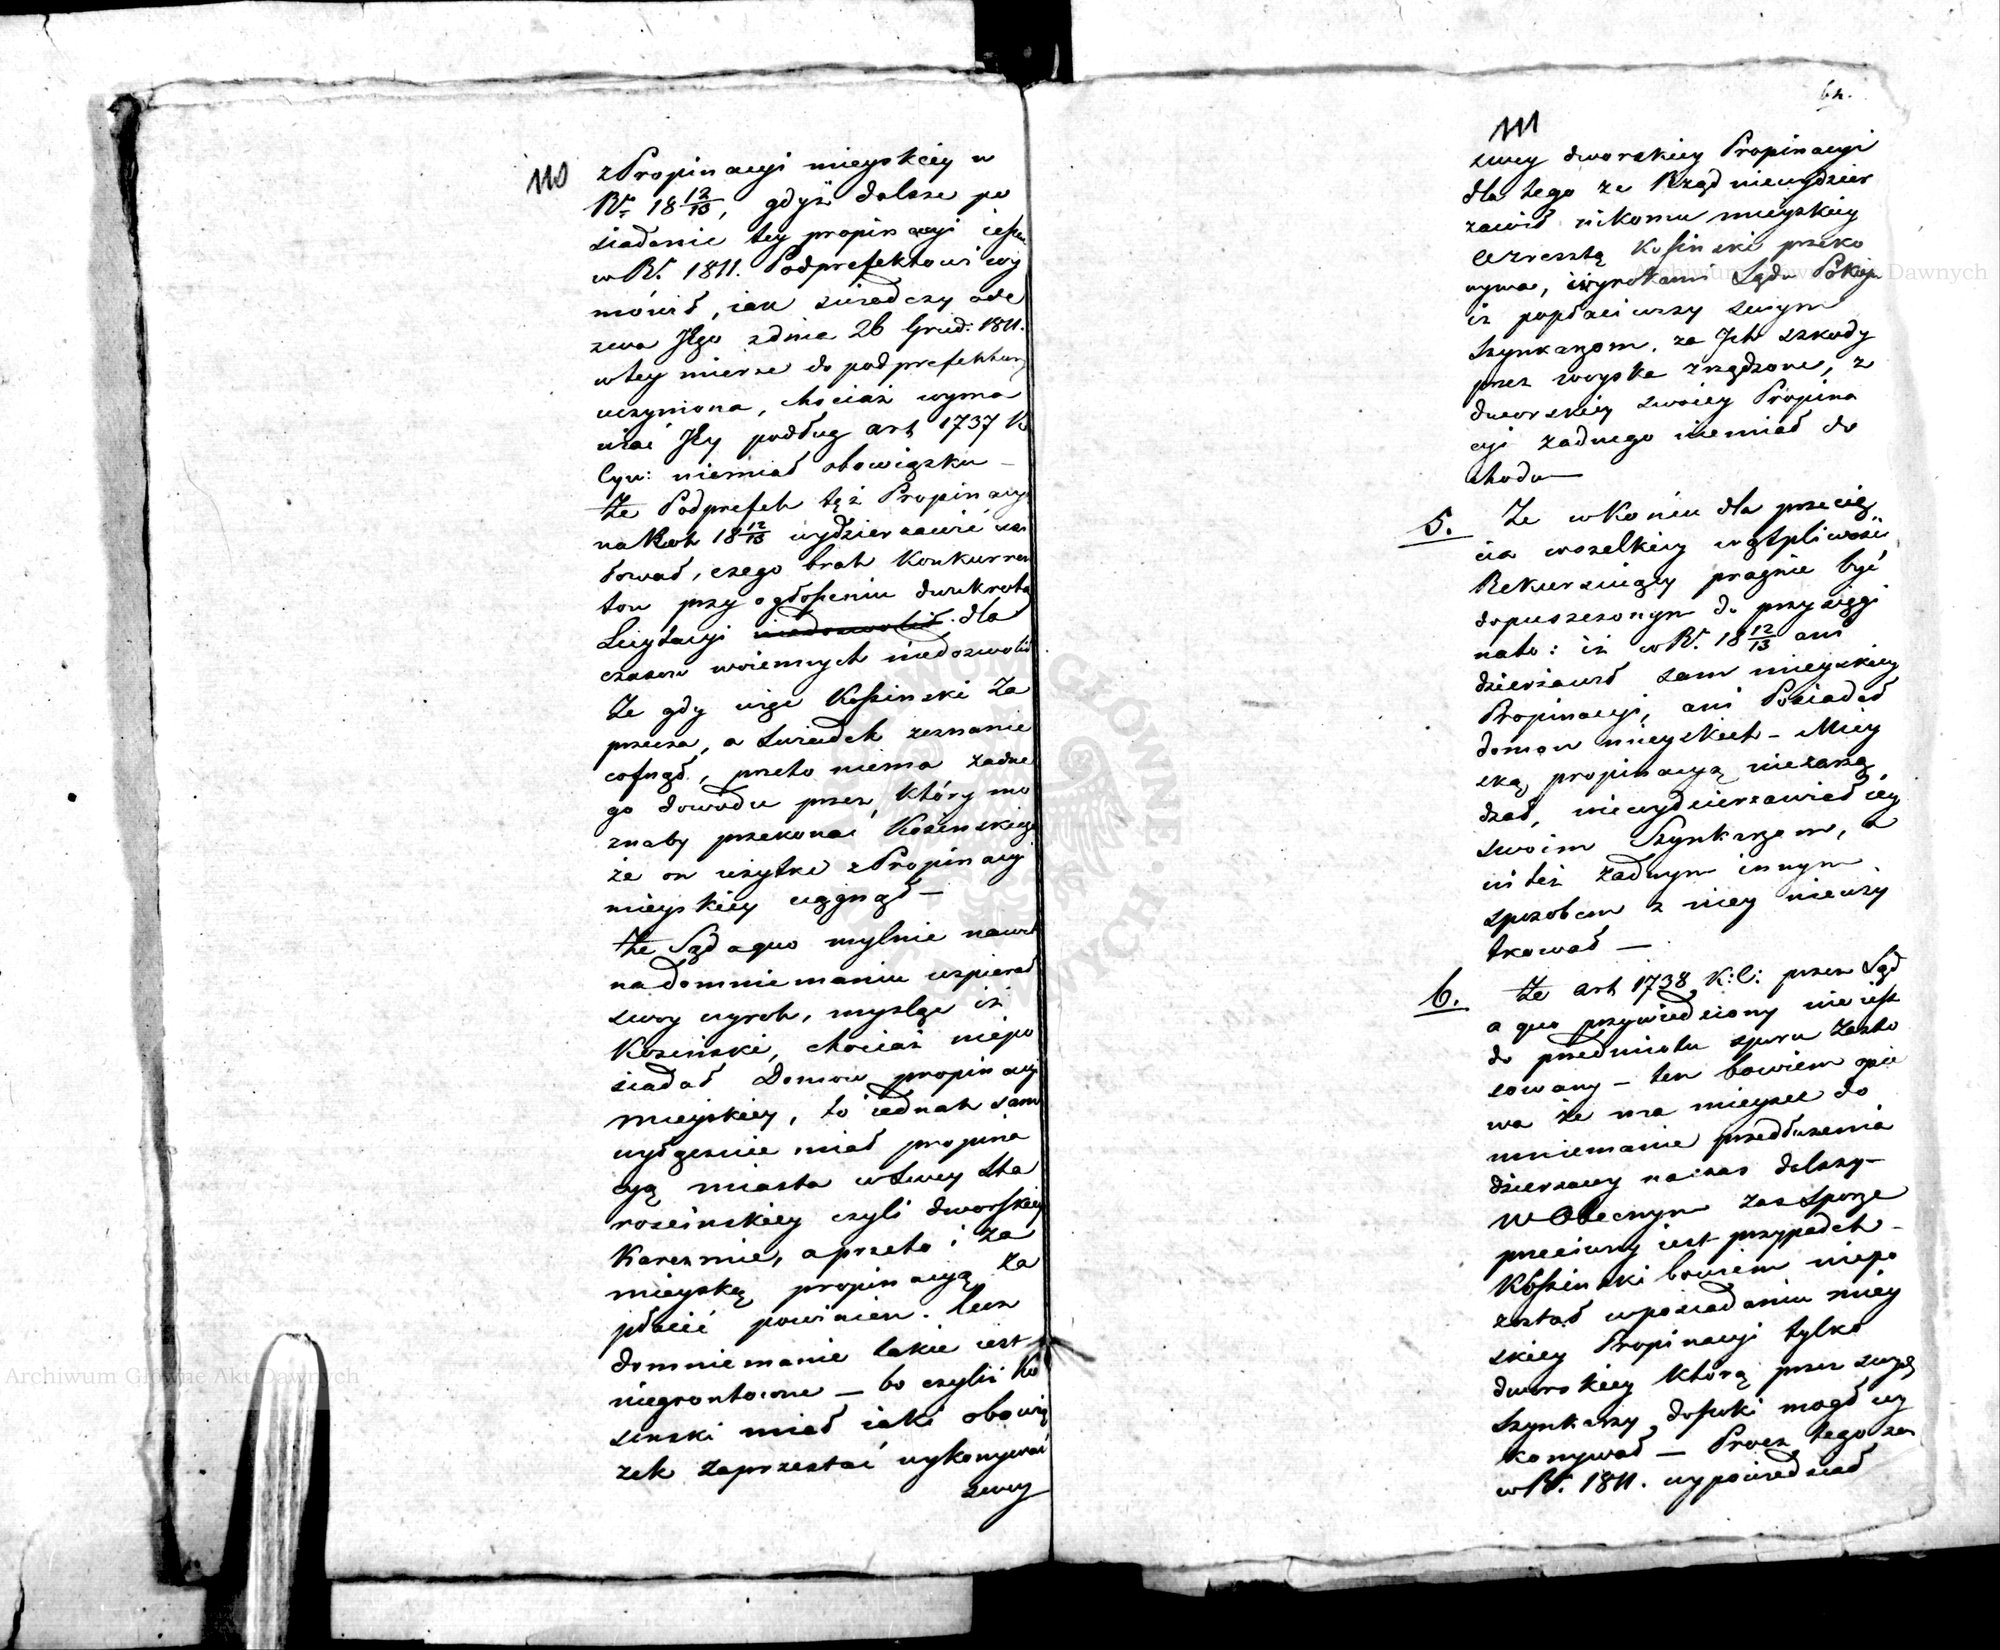 110
z Propinacyi mieyskiey w
Rr. 18 12/13, gdyż dalsze po
siadanie tey propinacyi ieszcze
w R. 1811. Podprefektowi wy
mówił, iak świadczy ode
zwa Jego z dnia 26 Grud: 1811.
w tey mierze do podprefektury
uczyniona, chociaż wyma
wiać Jey podług art 1737 K
Cyw: niemiał obowiązku —
Że Podprefekt tęż Propinacyą
na Rok 18 12/13 wydzierzawić usi
łował, czego brak Konkurren
tow przy ogłoszeniu dwukrotney
Licytacyi niedozwolił dla
czasow woiennych niedozwolił
Że gdy więc Kossinski za
przecza, a Świadek zeznanie
cofnął, przeto niema żadne
go dowodu przez który mo
znaby przekonać Kosinskiego
że on użytki z Propinacyi
mieyskiey ciągnął —
Że Sąd a quo mylnie nawet
na domniemaniu wspierał
swoy wyrok, myśląc iż
Kosiński, chociaż niepo
siadał Domow propinacyi
Mieyskiey, to iednak sam
wyłącznie miał propina
cyą miasta w swey Sta
rościnskiey czyli dworskiey
Karczmie, a przeto i za
mieyską propinacyą za
płacić powinien. Lecz
domniemanie takie iest
niegrontowne — bo czyliż Ko
sinski miał iaki obowią
zek zaprzestać wykonywać
swey
62.
111
swey dworskiey Propinacyi
dla tego ze Rząd niewydzier
zawił nikomu mieyskiey
Wreszcie Kosinski przeko
nywa, iż wyrokami Sądu Pokoju
iż popłaciwszy swym
Szynkarzom, za Ich szkody
przez woyska zrządzone, z
dworskiey swoiey Propina
cyi żadnego niemiał do
chodu —
5. Że w Końcu dla przecię
cia wszelkiey wątpliwości
Rekursuiący pragnie być
dopuszczonym do przysięgi
na to: iż w R. 18 12/13 ani
dzierżawił sam mieyskiey
Propinacyi, ani Posiadał
domow mieyskich — Miey
ską propinacyą niezarzą
dzał, niewydzierzawiał iey
swoim Szynkarzom, a
ni też żadnym innym
sposobem z niey nieuży
tkował —
6. Że art 1738 K: C: przez Sąd
a quo przywiedziony nie iest
do przedmiotu sporu zasto
sowany — ten bowiem opie
wa że ma mieysce do
mniemanie przedłużenia
dzierzawy na czas dalszy —
W Obecnym zas sporze
przeciwny iest przypadek —
Kossinski bowiem niepo
został w posiadaniu miey
skiey Propinacyi tylko
dworskiey którą przez swych
Szynkarzy dopoki mogł wy
konywał — Procz tego zas
w R. 1811. wypowiedział
Archiwum Główne Akt Dawnych